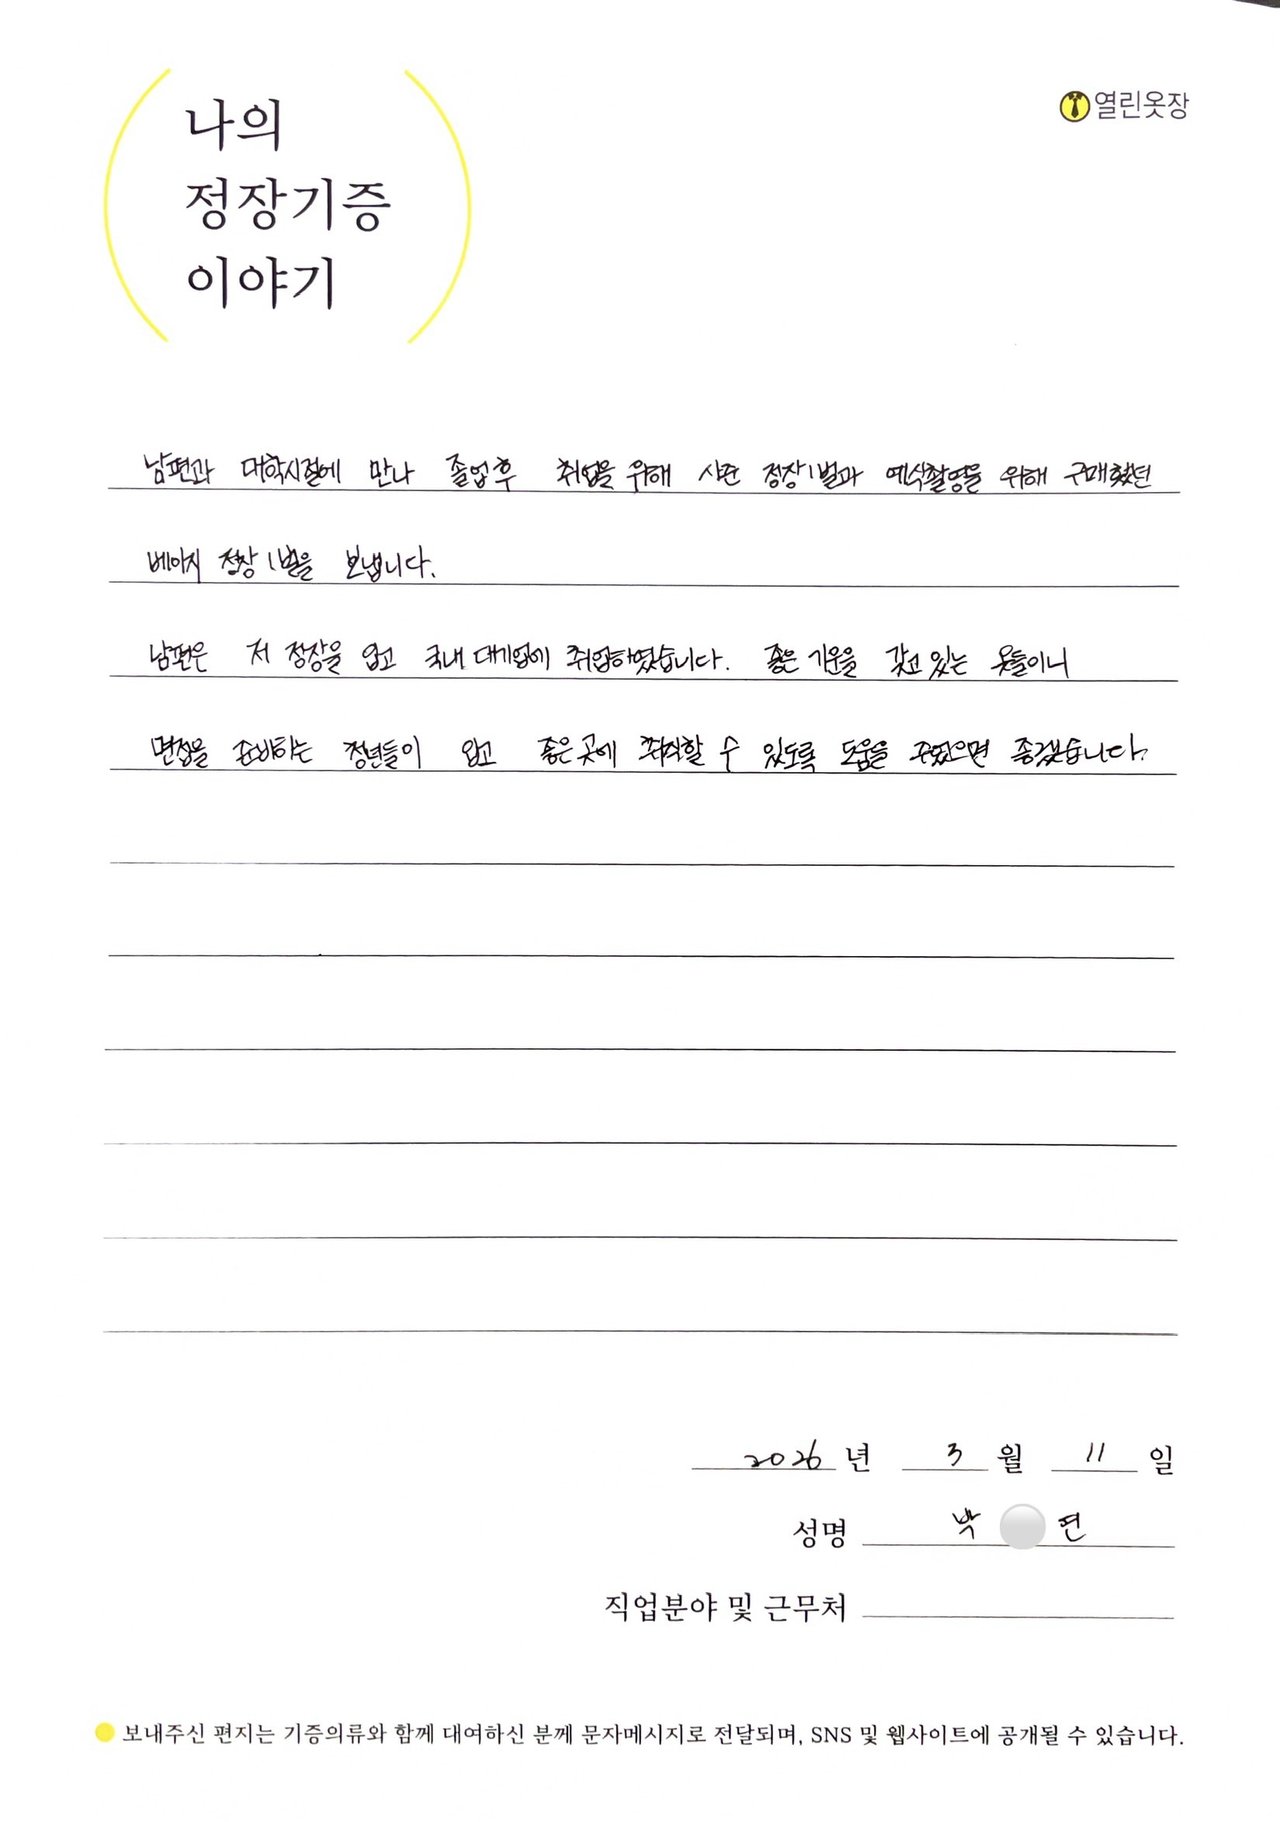 나의
정장기증
이야기
열린옷장
남편과 대학시절에 만나 졸업후 취업을 위해 샀던 정장1벌과 예식촬영을 위해 구매했던
베이지 정장1벌을 보냅니다.
남편은 저 정장을 입고 국내 대기업에 취업하였습니다. 좋은 기운을 갖고 있는 옷들이니
면접을 준비하는 청년들이 입고 좋은 곳에 취직할 수 있도록 도움을 주었으면 좋겠습니다.
2026 년 3 월 11 일
성명 박 연
직업분야 및 근무처
보내주신 편지는 기증의류와 함께 대여하신 분께 문자메시지로 전달되며, SNS 및 웹사이트에 공개될 수 있습니다.